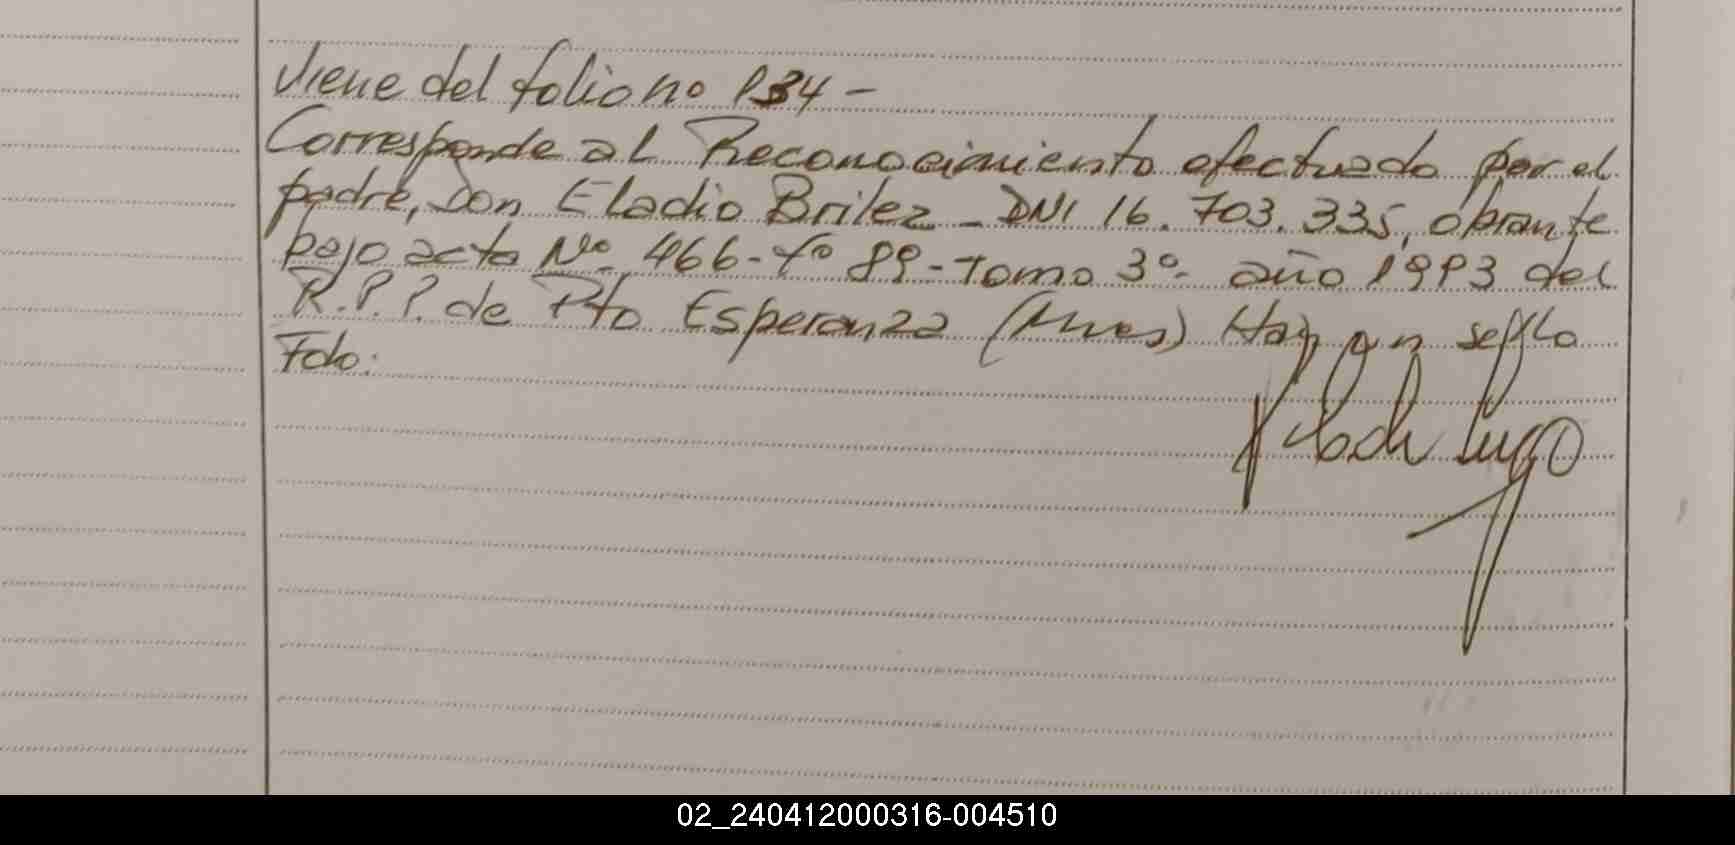 Viene del folio no 134 -
Corresponde al Reconocimiento efectuado por el
padre, Don Eladio Britez - DNI 16.703.335, obrante
bajo acta Nº 466 - Fº 89 - Tomo 3º - año 1993 del
R.P.P. de Pto Esperanza (Mnes) Hay un sello
Fdo:
02_240412000316-004510